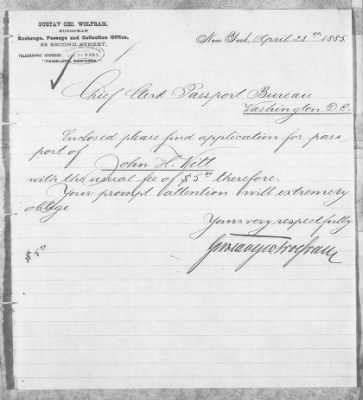 GUSTAV GEO. WOLFRAM,
EUROPEAN
Exchange, Passage and Collection Office,
SECOND STREET,
TELEGRAPHIC ADDRESS:
New York, April 28th 1885.
Chief Clerk Passport Bureau
Washington D.C.
Enclosed please find application for pass
port of
John H. Witt
with the usual fee of $5.00 therefore.
Your prompt attention will extremely
oblige
Yours very respectfully
Gustav Geo Wolfram
$5.00